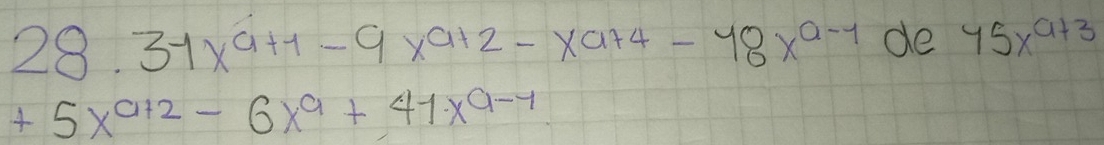 28. 31x^{a+1} - 9x^{a+2} - x^{a+4} - 18x^{a-1} de 15x^{a+3}
+ 5x^{a+2} - 6x^{a} + 41x^{a-1}